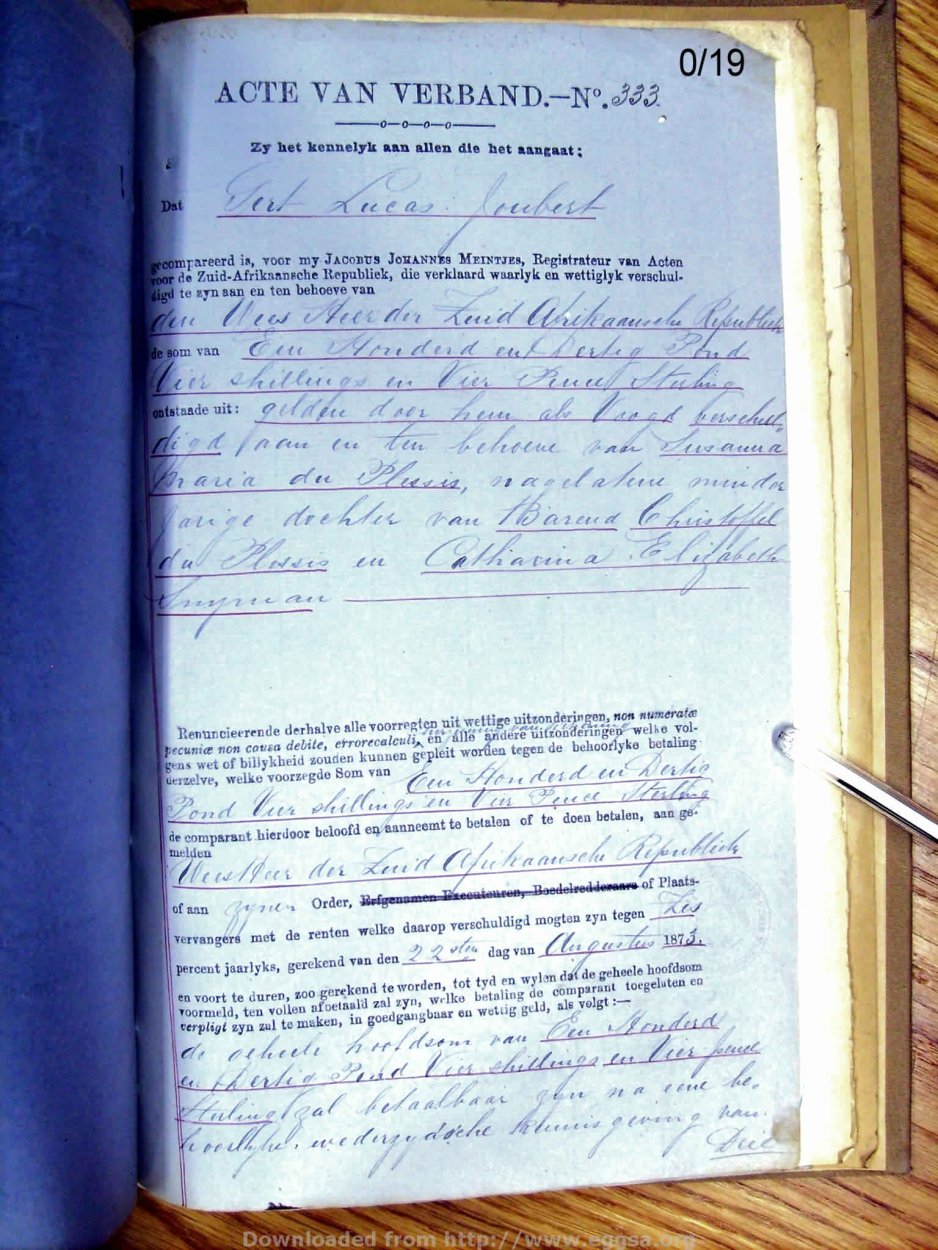 0/19
ACTE VAN VERBAND.—No. 333.
Zy het kennelyk aan allen die het aangaat;
Dat Gert Lucas Joubert
gecompareerd is, voor my JACOBUS JOHANNES MEINTJES, Registrateur van Acten
voor de Zuid-Afrikaansche Republiek, die verklaard waarlyk en wettiglyk verschul-
digd te zyn aan en ten behoeve van
den Wees Heer der Zuid Afrikaansche Republiek
de som van Een Honderd en Dertig Pond
Vier shillings en Vier Pence Sterling
ontstaade uit: gelden door hem als Voogd verschul-
digd aan en ten behoeve van Susanna
Maria du Plessis, nagelatene minder
jarige dochter van Barend Christoffel
du Plessis en Catharina Elizabeth
Snyman
Renuncieerrende derhalve alle voorregten uit wettige uitzonderingen, non numeratæ
pecuniæ non causa debite, errorecalculi, en alle andere uitzonderingen welke vol-
gens wet of billykheid zouden kunnen gepleit worden tegen de behoorlyke betaling
derzelve, welke voorzegde Som van Een Honderd en Dertig
Pond Vier shillings en Vier Pence Sterling
de comparant hierdoor beloofd en aanneemt te betalen of te doen betalen, aan ge-
melden
WeesHeer der Zuid Afrikaansche Republiek
of aan zynen Order, Erfgenamen Executeuren, Boedelredderaars of Plaats-
vervangers met de renten welke daarop verschuldigd mogten zyn tegen Zes
percent jaarlyks, gerekend van den 22sten dag van Augustus 1873.
en voort te duren, zoo gerekend te worden, tot tyd en wylen dat de geheele hoofdsom
voormeld, ten vollen afbetaald zal zyn, welke betaling de comparant toegelaten en
verpligt zyn zal te maken, in goedgangbaar en wettig geld, als volgt :—
de geheele hoofdsom van Een Honderd
en Dertig Pond Vier shillings en Vier pence
Sterling zal betaalbaar zyn na eene be-
hoorlyke wederzydsche kennisgeving van
Drie
Downloaded from http://www.eggsa.org